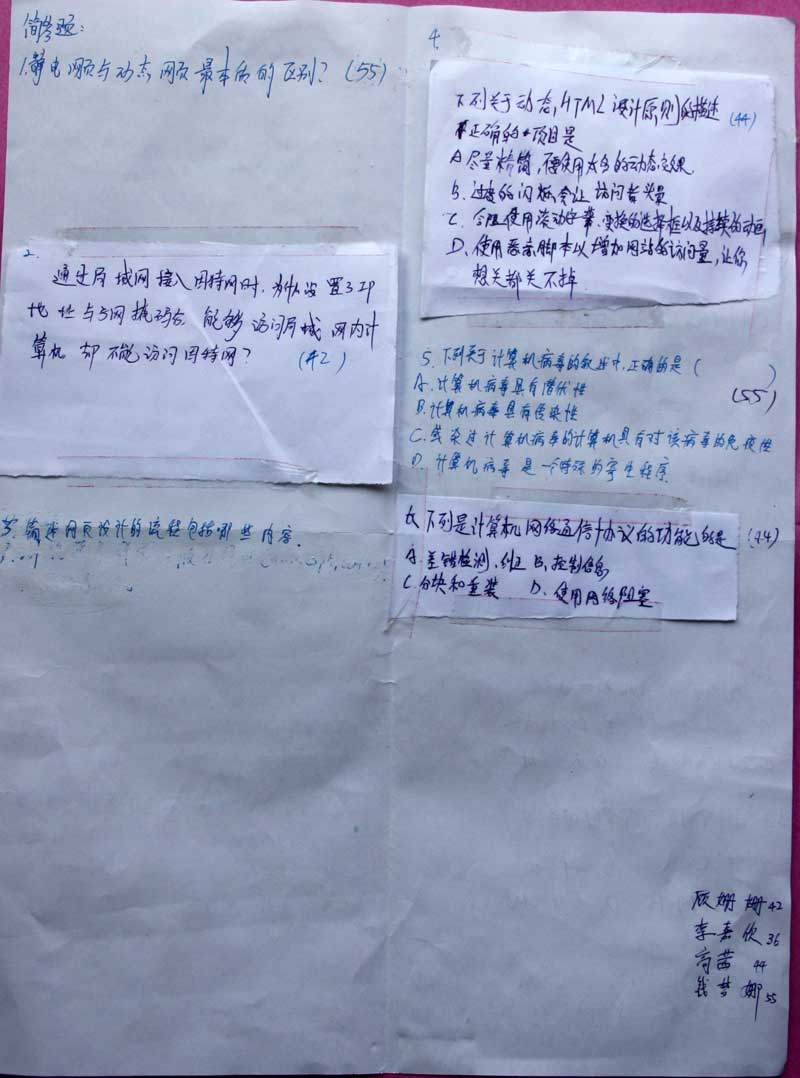 简答题:
1.静电网页与动态网页最本质的区别? (55)
2.
通过局域网接入因特网时,为什么设置了IP
地址与子网掩码后 能够访问局域网内计
算机 却不能访问因特网? (42)
3.简述网页设计的流程包括哪些内容.
4.
下列关于动态HTML设计原则的描述 (44)
正确的项目是
A.尽量精简,不要使用太多的动态效果.
B.过度的闪烁会让访问者头晕
C.合理使用滚动字幕、变换的选择框以及持续的动画
D、使用恶意脚本以增加网站的访问量,让你
想关都关不掉.
5.下列关于计算机病毒的叙述中,正确的是( )
(55)
A.计算机病毒具有潜伏性
B.计算机病毒具有传染性
C.感染过计算机病毒的计算机具有对该病毒的免疫性
D.计算机病毒是一个特殊的寄生程序
6、下列是计算机网络通信协议的功能的是 (44)
A.差错检测、纠正 B、控制信息
C.分块和重装 D、使用网络阻塞
顾姗姗 42
李嘉欣 36
高茜 44
钱梦娜 55